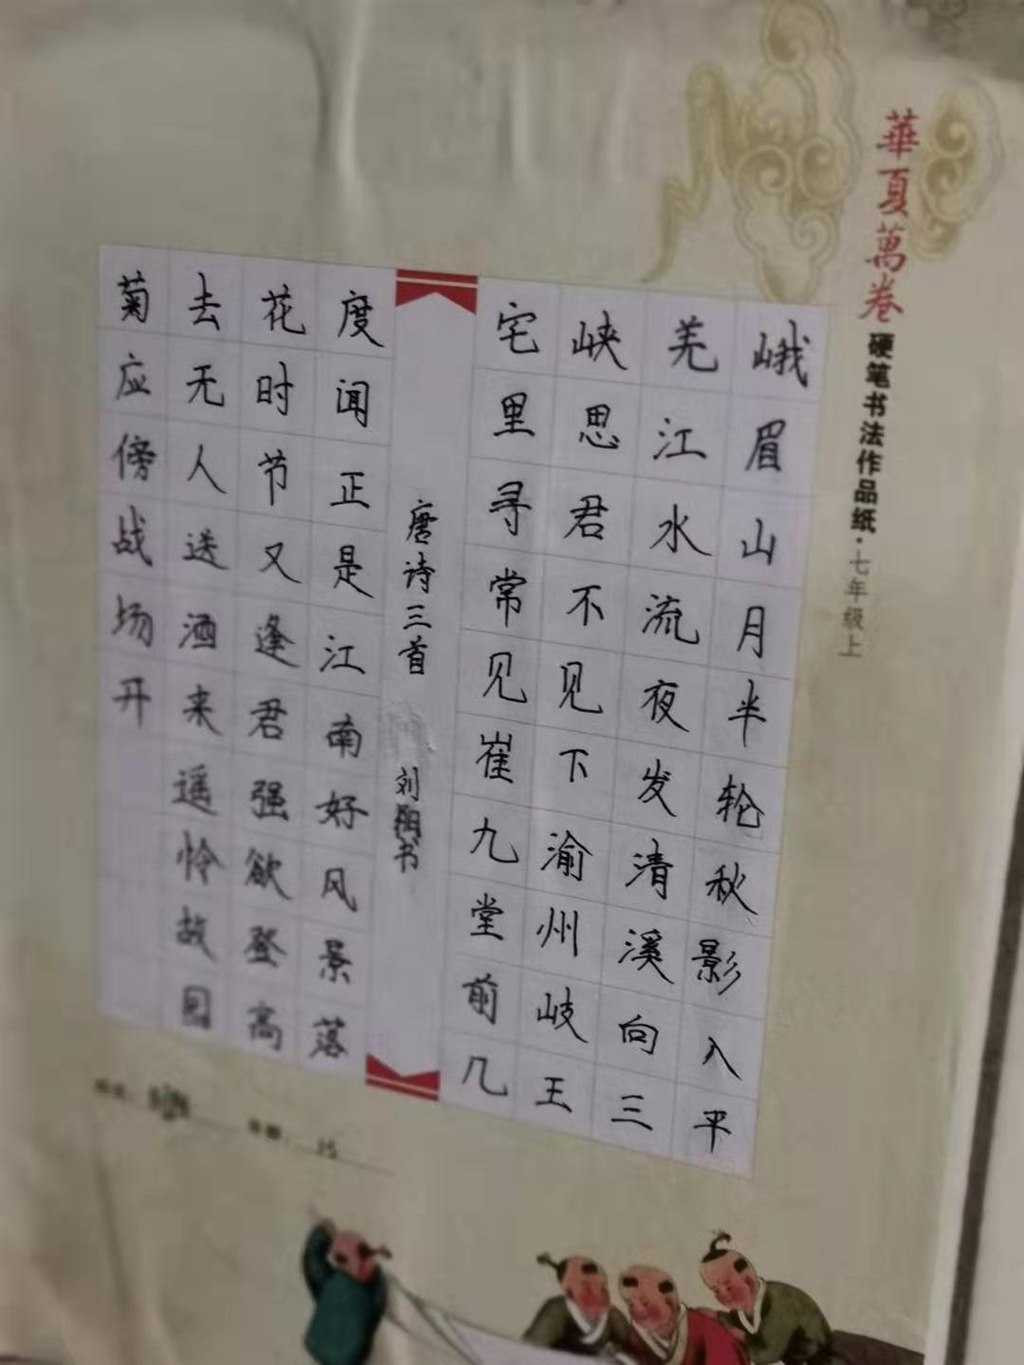 華夏萬卷 硬笔书法作品纸·七年级上
峨眉山月半轮秋影入平
羌江水流夜发清溪向三
峡思君不见下渝州岐王
宅里寻常见崔九堂前几
唐诗三首 刘 书
度闻正是江南好风景落
花时节又逢君强欲登高
去无人送酒来遥怜故园
菊应傍战场开
15